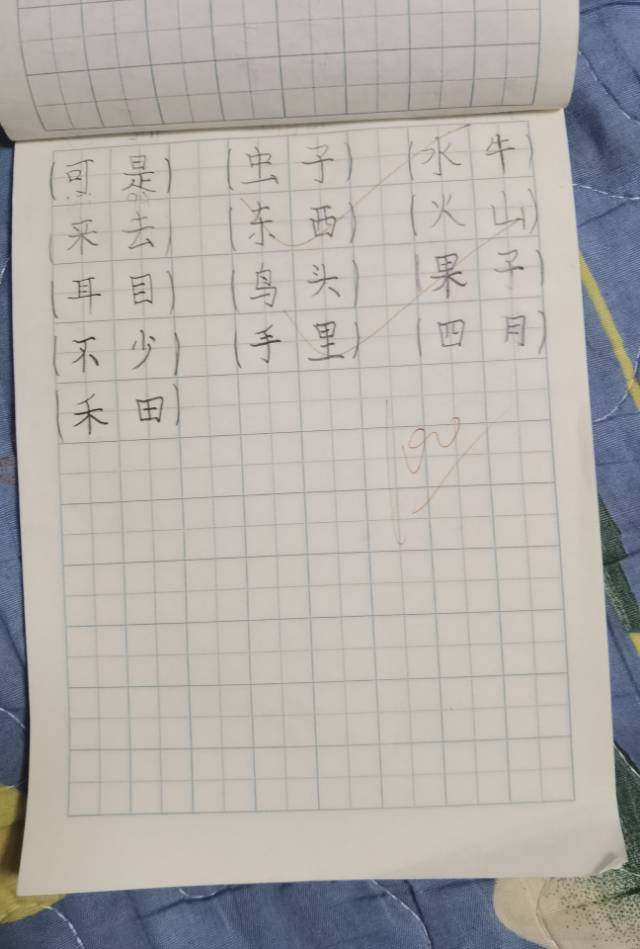 (可是) (虫子) (水牛)
(来去) (东西) (火山)
(耳目) (鸟头) (果子)
(不少) (手里) (四月)
(禾田)
100